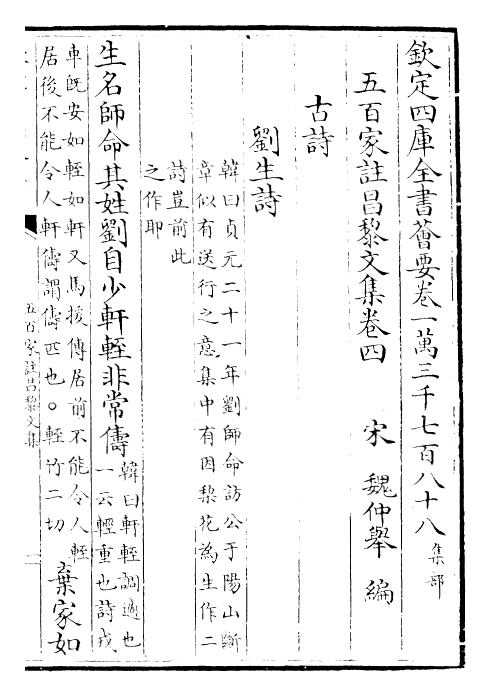 欽定四庫全書薈要卷一萬三千七百八十八 集部
五百家註昌黎文集卷四 宋 魏仲舉 編
古詩
劉生詩
韓曰貞元二十一年劉師命訪公于陽山斷
章似有送行之意集中有因梨花為生作二
詩豈前此
之作耶
生名師命其姓劉自少軒輊非常儔
韓曰軒輊調適也
一云輕重也詩戎
車旣安如輊如軒又馬援傳居前不能令人輊
居後不能令人軒儔謂儔匹也○輊竹二切
棄家如
五百家註昌黎文集